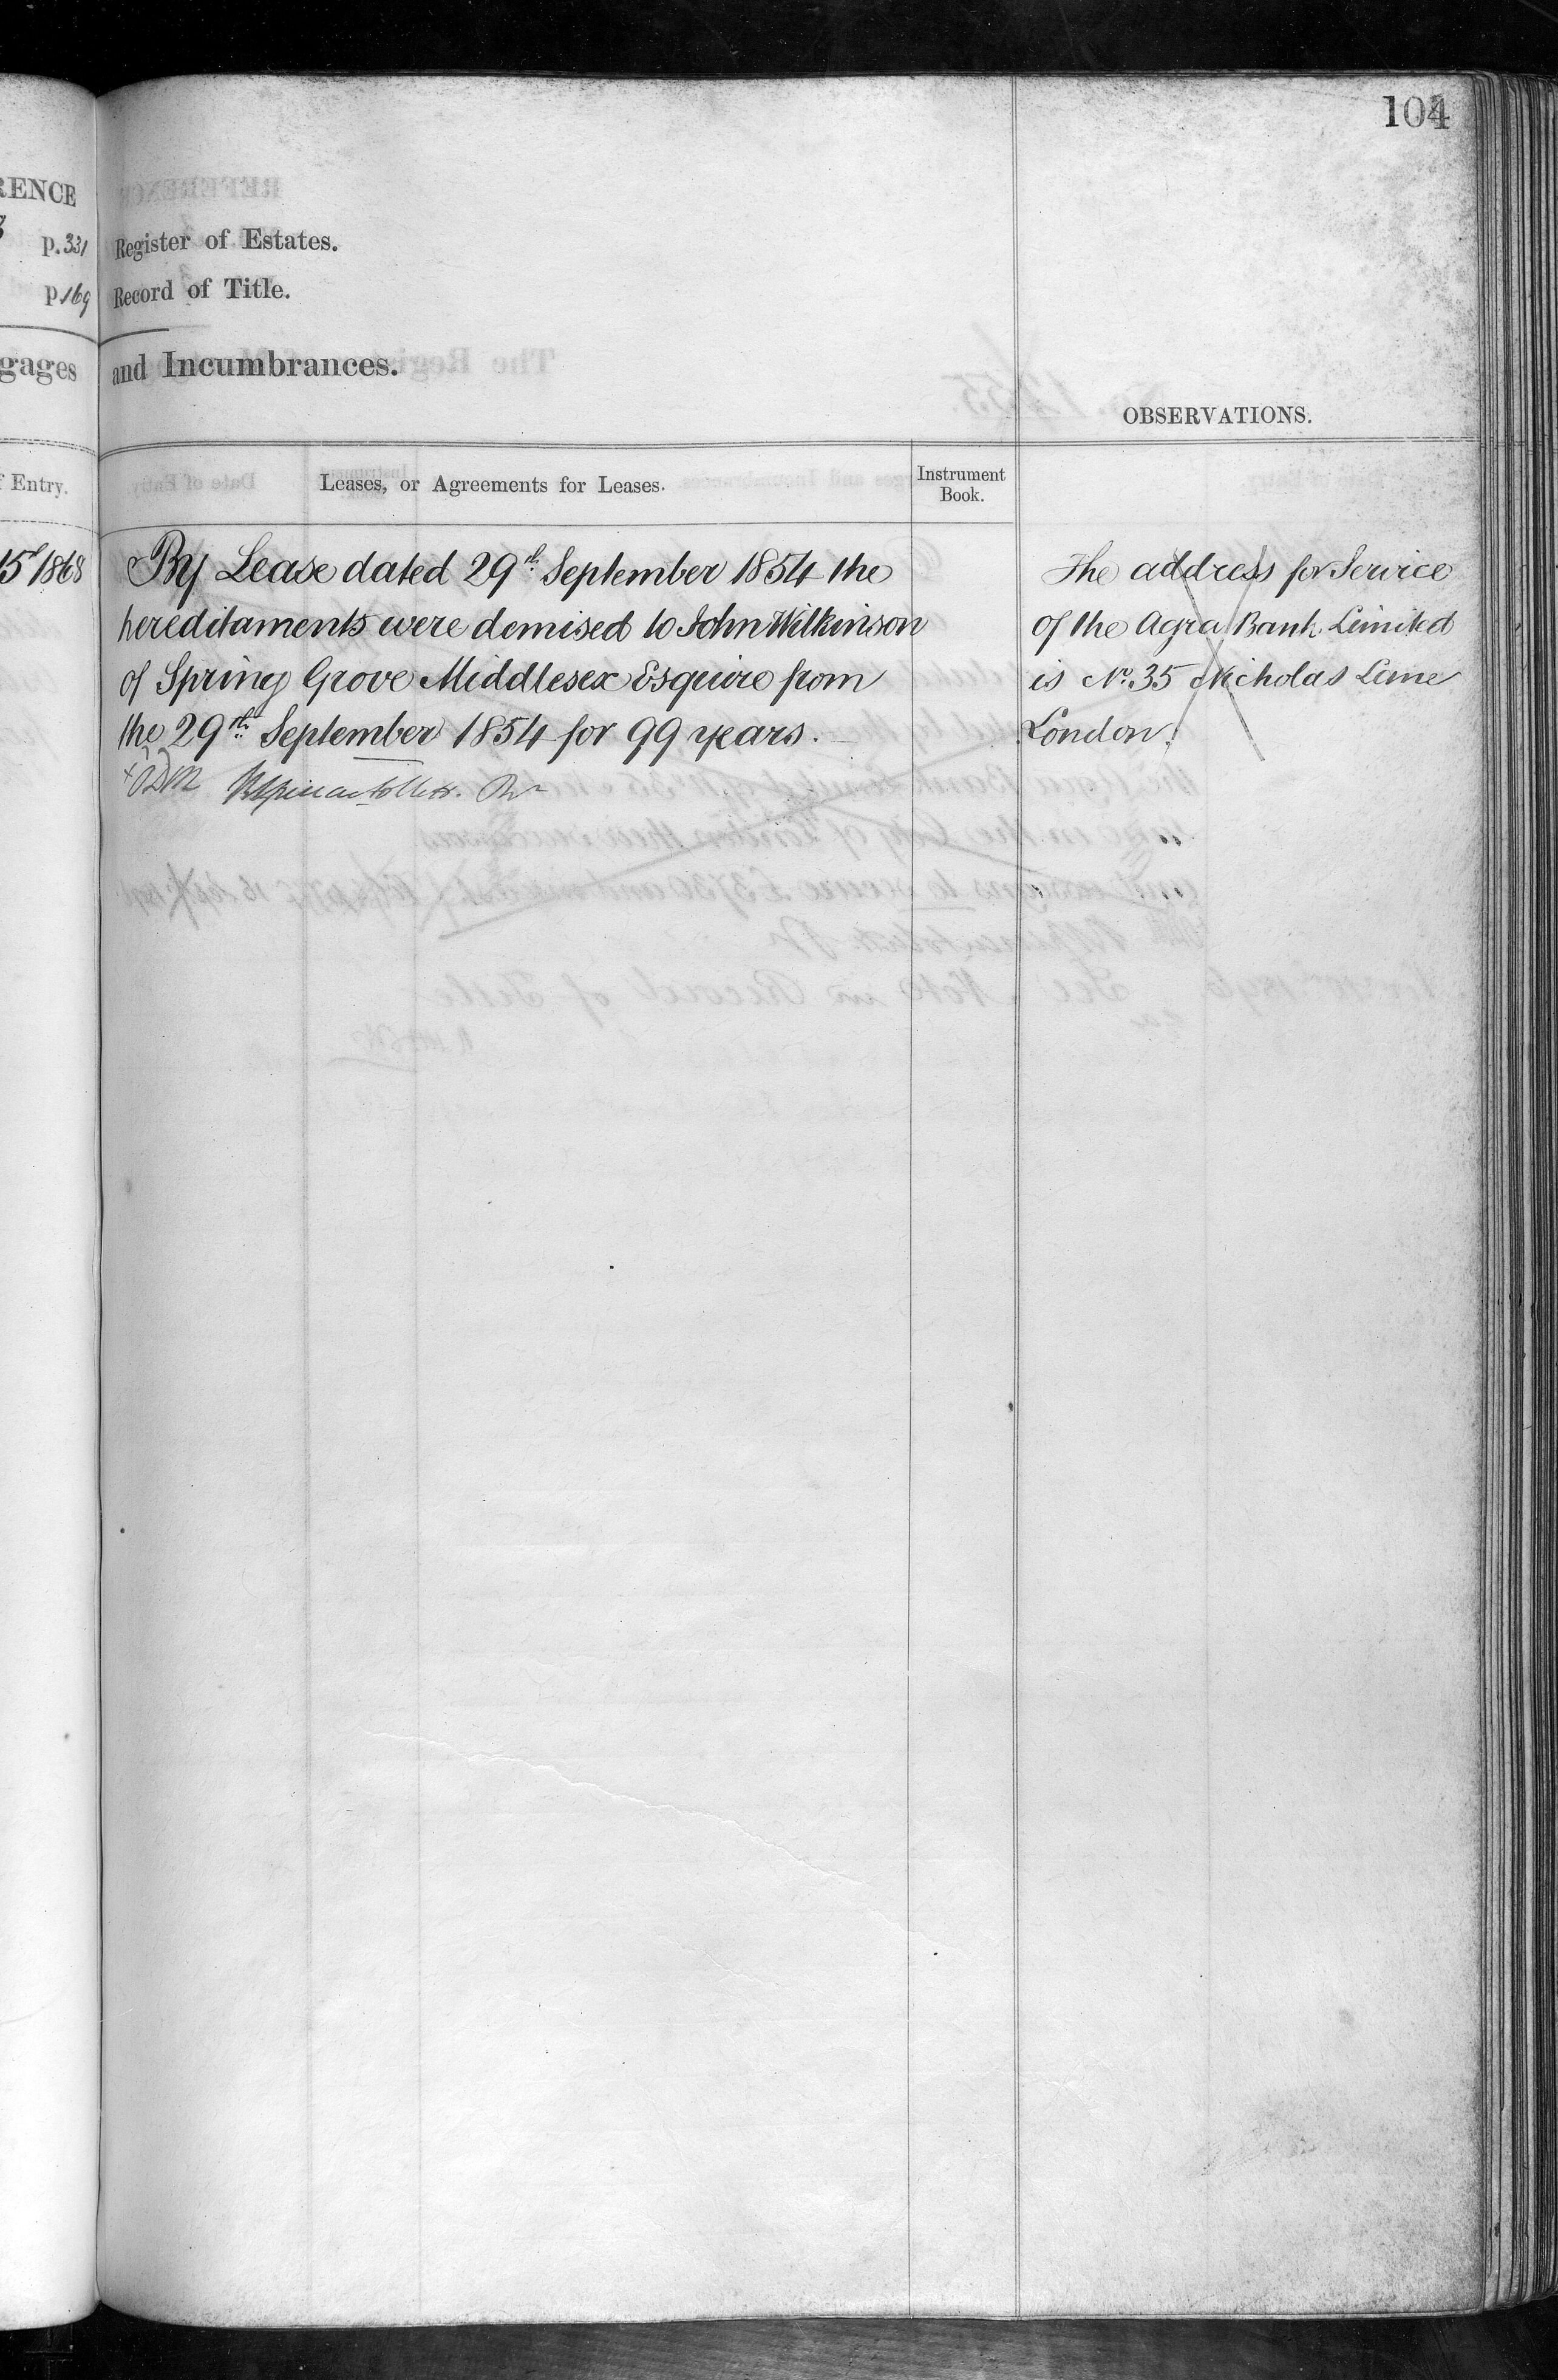 104
RENCE
p. 331 Register of Estates.
p 169 Record of Title.
gages and Incumbrances.
OBSERVATIONS.
f Entry. Leases, or Agreements for Leases. Instrument
Book.
15th 1868 By Lease dated 29th September 1854 the
hereditaments were demised to John Wilkinson
of Spring Grove Middlesex Esquire from
the 29th September 1854 for 99 years.
The address for Service
of the Agra Bank Limited
is No. 35 Nicholas Lane
London.